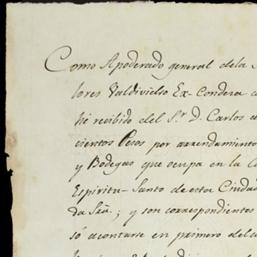 Como Apoderado general dela S
lores Valdivielso Ex-Condesa d
he recibido del S.r D. Carlos
cientos Pesos por arrendamiento
y Bodegas que ocupa en la C
Espiritu-Santo de esta Ciudad
da Señ; y son correspondientes
só acontarse en primero del